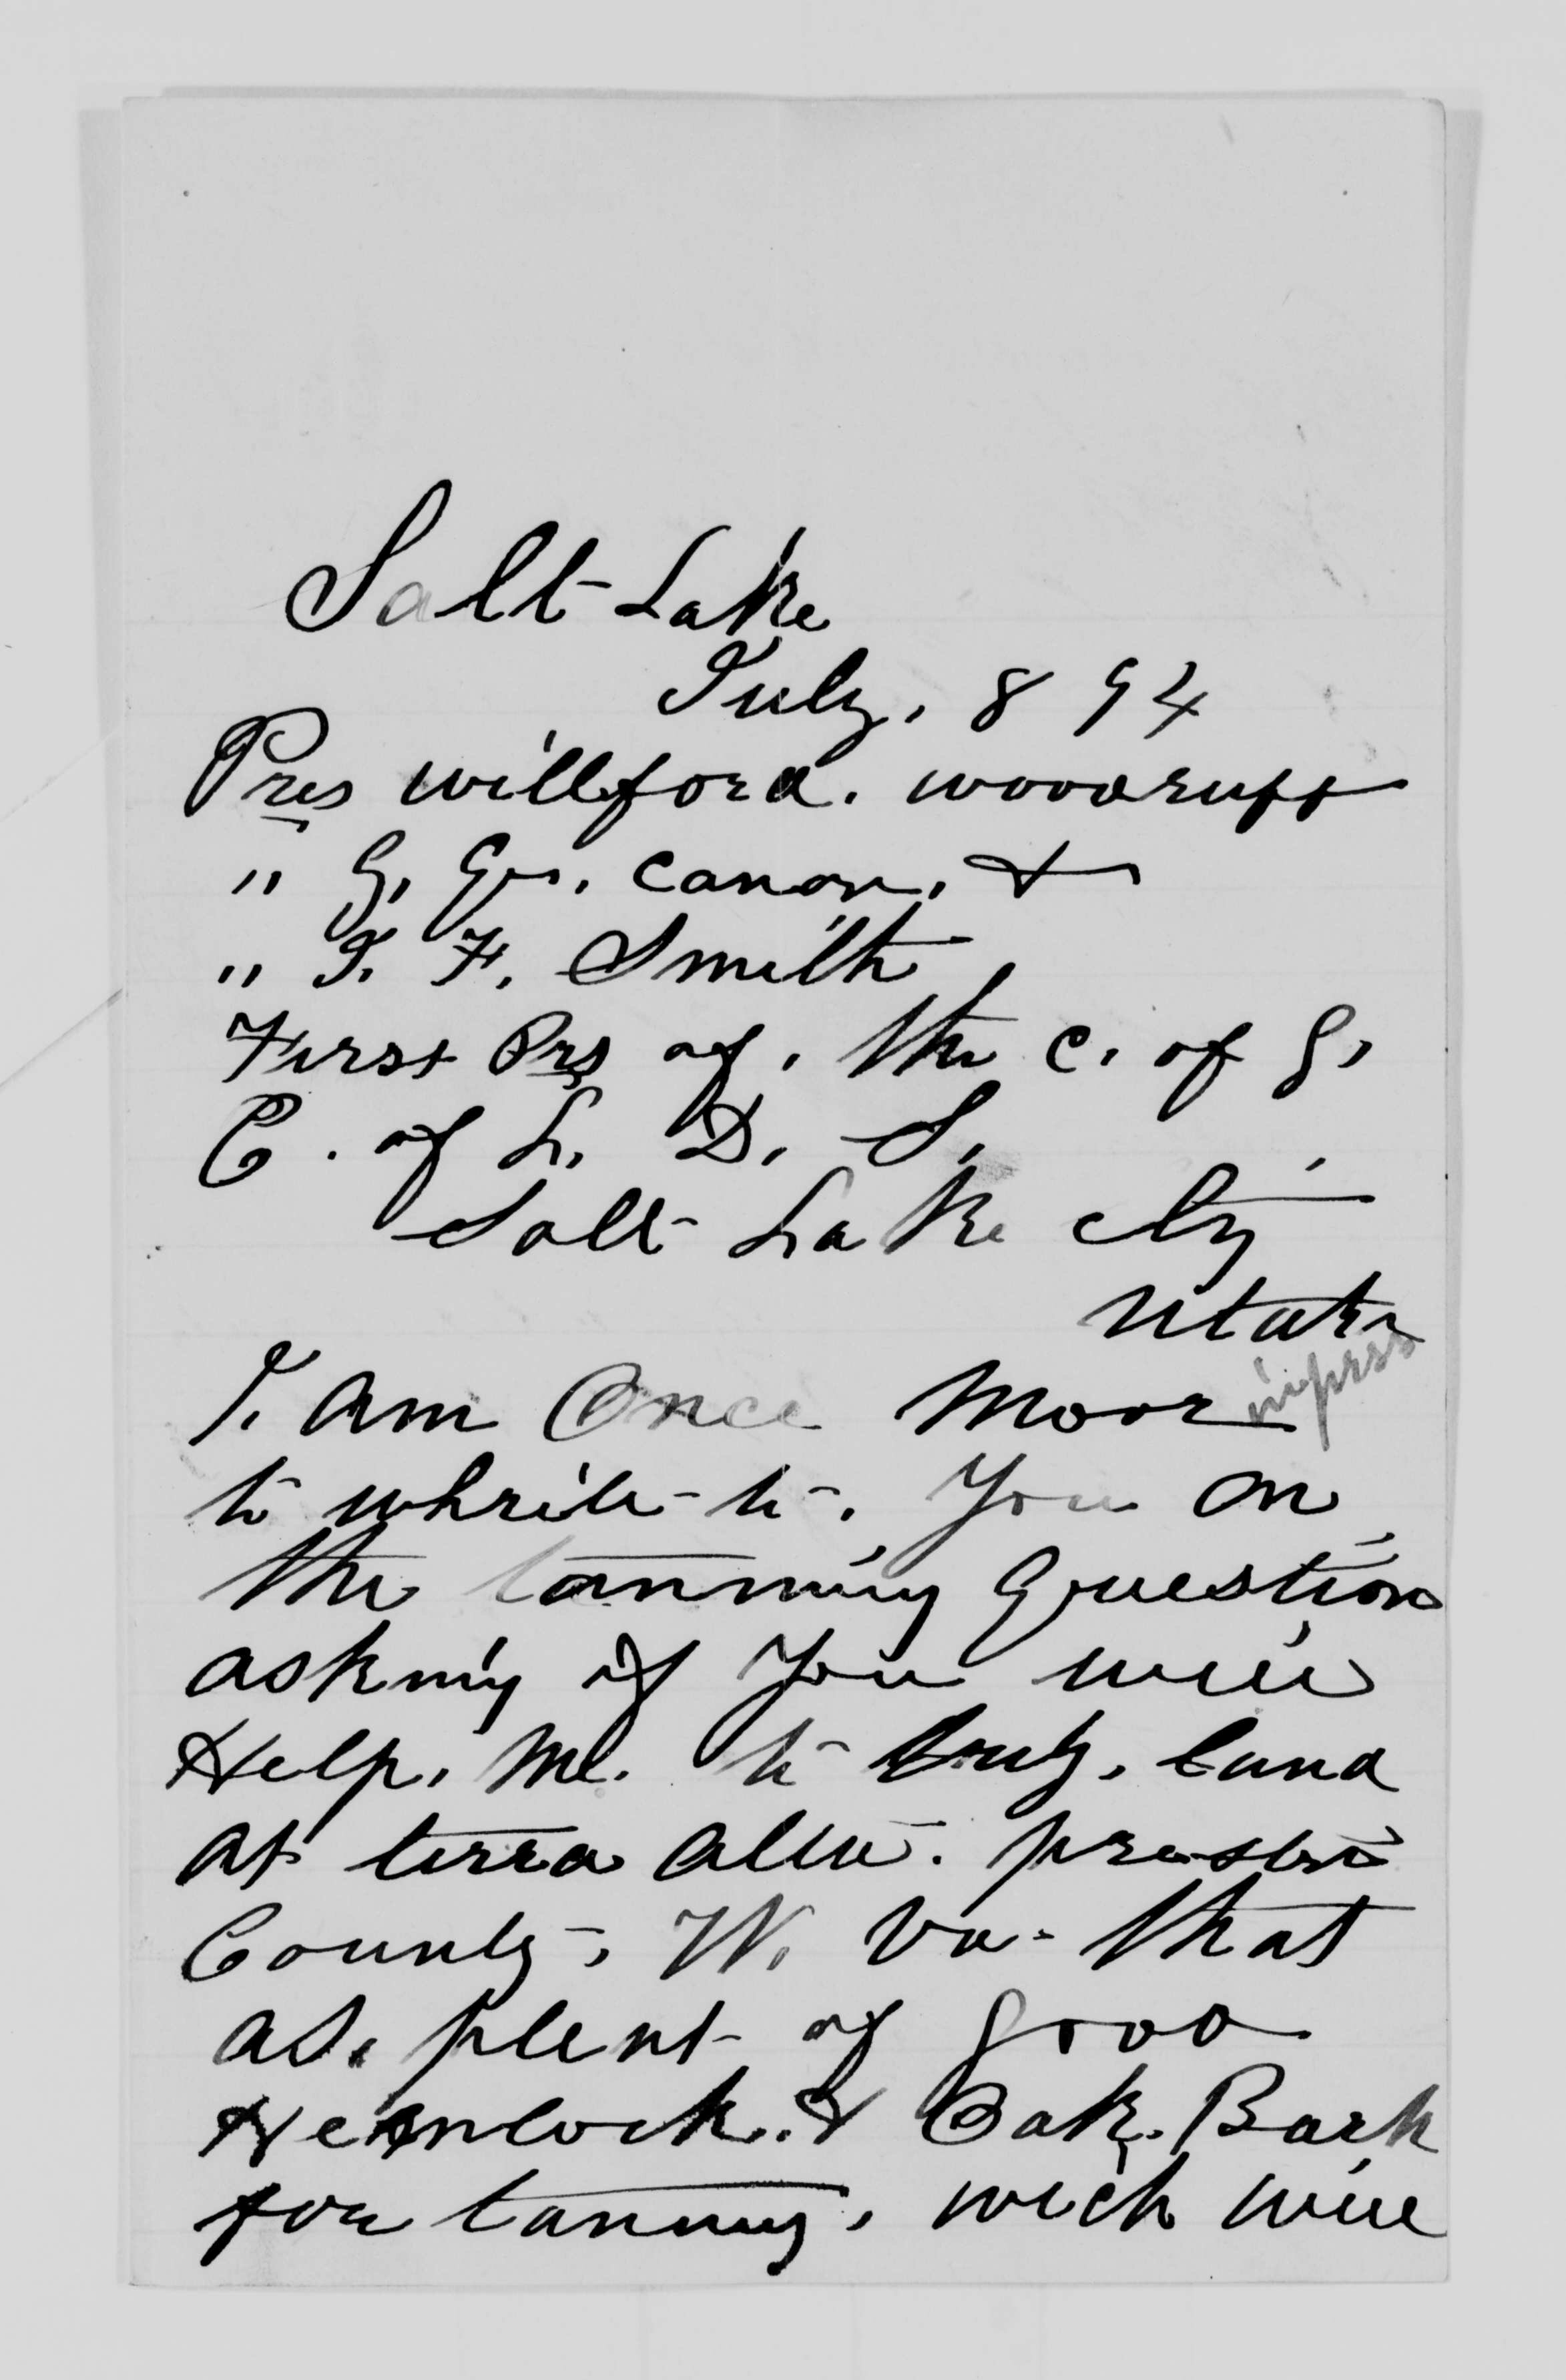 Salt Lake
July. 8 94
Pres willford. woodruff
" G. Q. canon. &
" J. F. Smith
First Prs of. the C. of J.
C. of L. D. S.
Salt Lake city
Utah
I. am Once Moor impress
to whrite to. You on
the tanning Question
asking if You will
Help. Me. to buy. land
at terra alta. preston
County, W. Va. that
as. plent of good
Hemlock. & Oak. Bark
for tanning. wich will